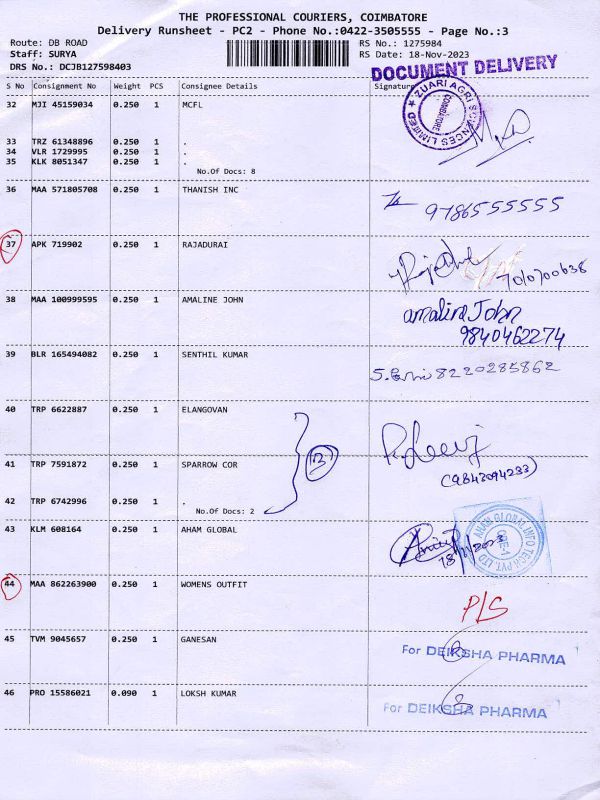 THE PROFESSIONAL COURIERS, COIMBATORE
Delivery Runsheet - PC2 - Phone No.:0422-3505555 - Page No.:3
Route: DB ROAD
Staff: SURYA
DRS No.: DCJB127598403
RS No.: 1275984
RS Date: 18-Nov-2023
DOCUMENT DELIVERY
S No Consignment No Weight PCS Consignee Details Signature
32 MJI 45159034 0.250 1 MCFL
ZUARI AGRI SCIENCES LIMITED
COIMBATORE
33 TRZ 61348896 0.250 1 .
34 VLR 1729995 0.250 1 .
35 KLK 8051347 0.250 1 .
No.Of Docs: 8
36 MAA 571805708 0.250 1 THANISH INC
9786555555
37 APK 719902 0.250 1 RAJADURAI
38 MAA 100999595 0.250 1 AMALINE JOHN
amaline John
9840462274
39 BLR 165494082 0.250 1 SENTHIL KUMAR
8220285862
40 TRP 6622887 0.250 1 ELANGOVAN
41 TRP 7591872 0.250 1 SPARROW COR
(9843094233)
42 TRP 6742996 0.250 1 .
No.Of Docs: 2
43 KLM 608164 0.250 1 AHAM GLOBAL
44 MAA 862263900 0.250 1 WOMENS OUTFIT
P/S
45 TVM 9045657 0.250 1 GANESAN
For DEIKSHA PHARMA
46 PRO 15586021 0.090 1 LOKSH KUMAR
For DEIKSHA PHARMA